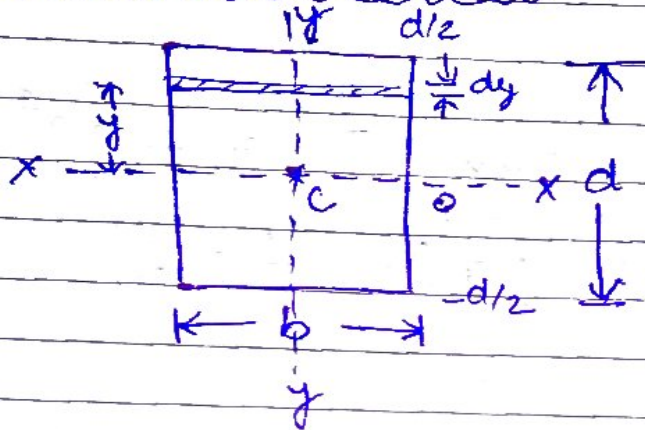 y d/2
dy
y
x C o x d
-d/2
b
y